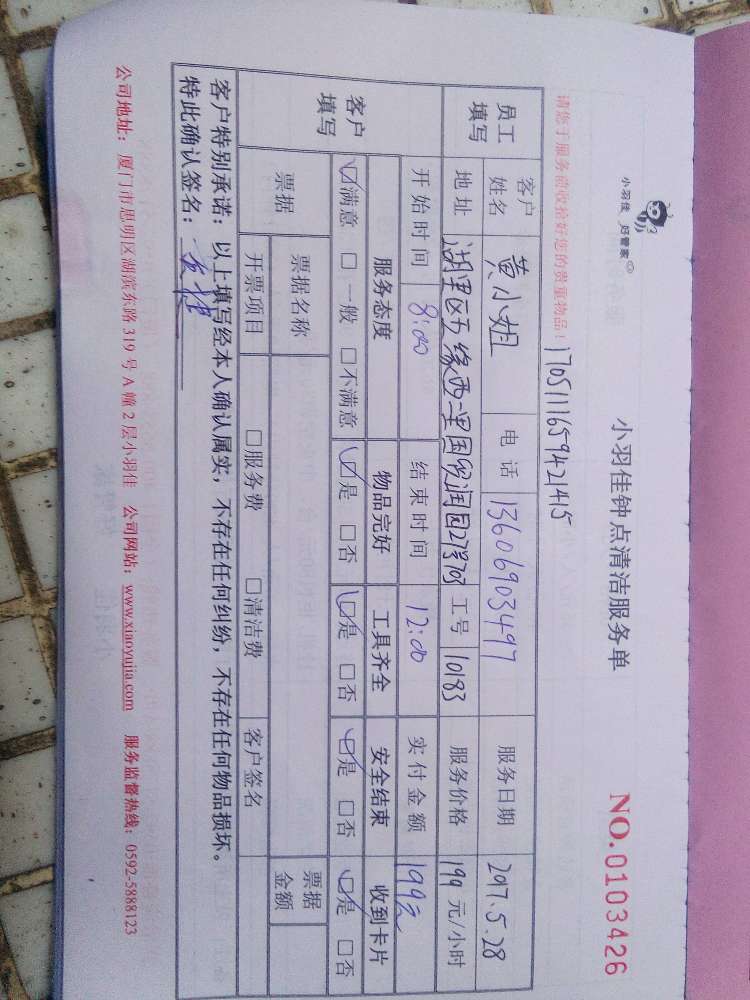 小羽佳 好管家
小羽佳钟点清洁服务单
NO.0103426
请您于服务前收拾好您的贵重物品！
1705111659421415
员工填写 客户姓名 黄小姐 电话 13606903497 服务日期 2017.5.28
地址 湖里区五缘西二里国贸润园27号703 工号 10183 服务价格 199 元/小时
开始时间 8:00 结束时间 12:00 实付金额 199元
客户填写 服务态度 物品完好 工具齐全 安全结束 收到卡片
☑满意 □一般 □不满意 ☑是 □否 ☑是 □否 ☑是 □否 ☑是 □否
票据 票据名称 票据金额
开票项目 □服务费 □清洁费 客户签名
客户特别承诺：以上填写经本人确认属实，不存在任何纠纷，不存在任何物品损坏。
特此确认签名：
公司地址：厦门市思明区湖滨东路 319 号 A 幢 2 层小羽佳 公司网站：www.xiaoyujia.com 服务监督热线：0592-5888123